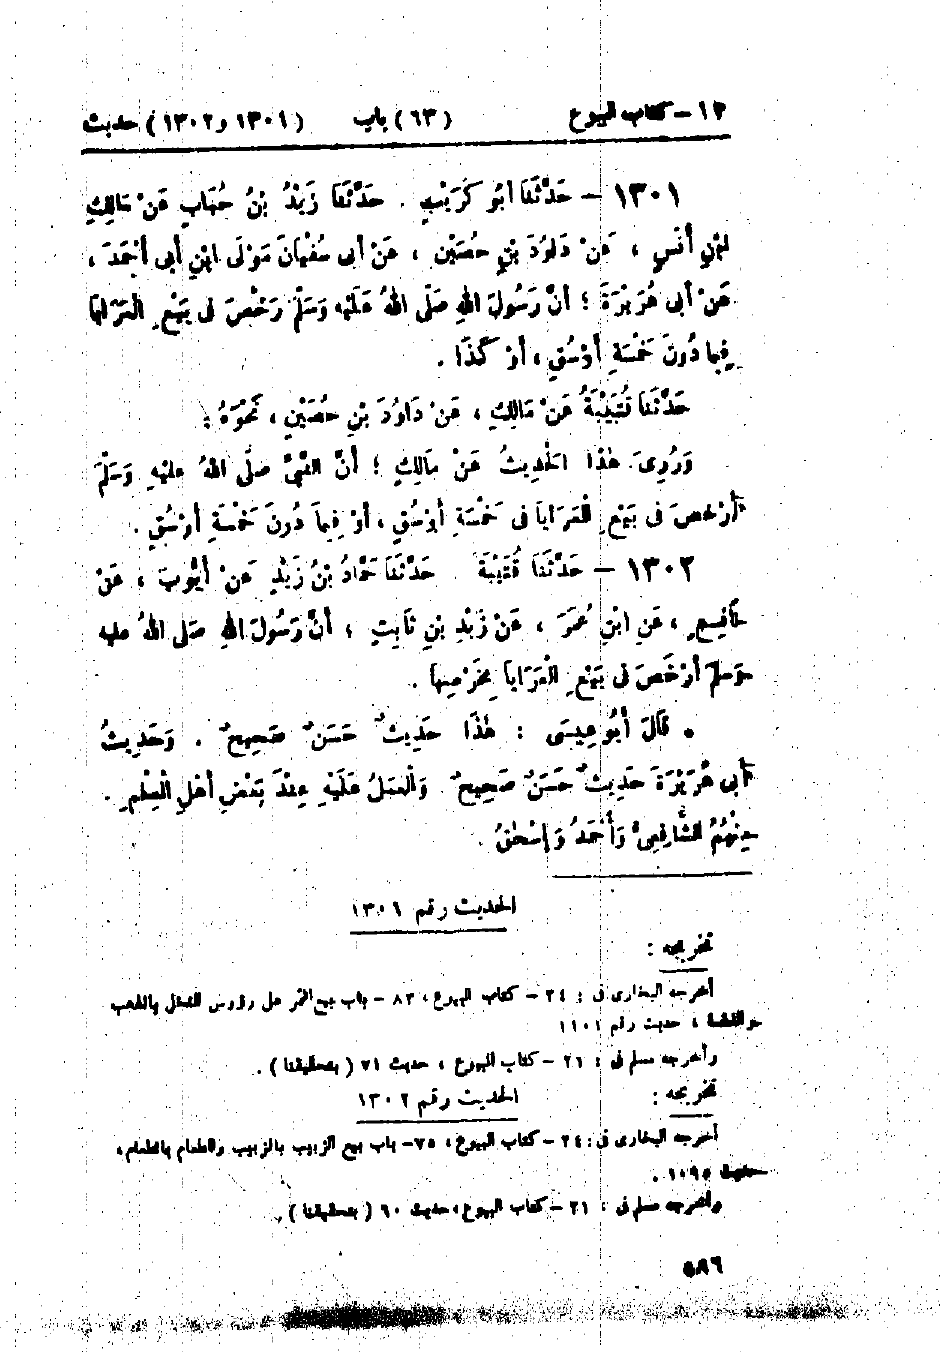 ١٢ – كتاب البيوع (٦٣) باب (١٣٠١ و ١٣٠٢) حديث
١٣٠١ – حَدَّثَنَا أَبُو كُرَيْبٍ . حَدَّثَنَا زَيْدُ بْنُ حُبَابٍ عَنْ مَالِكِ
ابْنِ أَنَسٍ ، عَنْ دَاوُدَ بْنِ حُصَيْنٍ ، عَنْ أَبِى سُفْيَانَ مَوْلَى ابْنِ أَبِى أَحْمَدَ ،
عَنْ أَبِى هُرَيْرَةَ ؛ أَنَّ رَسُولَ اللهِ صَلَّى اللهُ عَلَيْهِ وَسَلَّمَ رَخَّصَ فِى بَيْعِ الْعَرَايَا
فِيمَا دُونَ خَمْسَةِ أَوْسُقٍ ، أَوْ كَذَا .
حَدَّثَنَا قُتَيْبَةُ عَنْ مَالِكٍ ، عَنْ دَاوُدَ بْنِ حُصَيْنٍ ، نَحْوَهُ .
وَرُوِىَ هٰذَا الْحَدِيثُ عَنْ مَالِكٍ ؛ أَنَّ النَّبِىَّ صَلَّى اللهُ عَلَيْهِ وَسَلَّمَ
أَرْخَصَ فِى بَيْعِ الْعَرَايَا فِى خَمْسَةِ أَوْسُقٍ ، أَوْ فِيمَا دُونَ خَمْسَةِ أَوْسُقٍ .
١٣٠٢ – حَدَّثَنَا قُتَيْبَةُ حَدَّثَنَا حَمَّادُ بْنُ زَيْدٍ عَنْ أَيُّوبَ ، عَنْ
نَافِعٍ ، عَنِ ابْنِ عُمَرَ ، عَنْ زَيْدِ بْنِ ثَابِتٍ ؛ أَنَّ رَسُولَ اللهِ صَلَّى اللهُ عليه
وَسلم أَرْخَصَ فِى بَيْعِ الْعَرَايَا بِخَرْصِهَا .
• قَالَ أَبُو عِيسَى : هٰذَا حَدِيثٌ حَسَنٌ صَحِيحٌ . وَحَدِيثُ
أَبِى هُرَيْرَةَ حَدِيثٌ حَسَنٌ صَحِيحٌ وَالْعَمَلُ عَلَيْهِ عِنْدَ بَعْضِ أَهْلِ الْعِلْمِ .
مِنْهُمُ الشَّافِعِىُّ وَأَحْمَدُ وَإِسْحٰقُ .
الحديث رقم ١٣٠١
تخريجه :
أخرجه البخارى فى : ٣٤ – كتاب البيوع ، ٨٣ – باب بيع الثمر على رؤوس النخل بالذهب
والفضة ، حديث رقم ١١٠١
وأخرجه مسلم فى : ٢١ – كتاب البيوع ، حديث ٧١ (بتحقيقنا) .
الحديث رقم ١٣٠٢
تخريجه :
أخرجه البخارى فى : ٣٤ – كتاب البيوع ، ٧٥ – باب بيع الزبيب بالزبيب والطعام بالطعام ،
حديث ١٠٩٥ .
وأخرجه مسلم فى : ٢١ – كتاب البيوع ، حديث ٦٠ (بتحقيقنا) .
٥٨٦